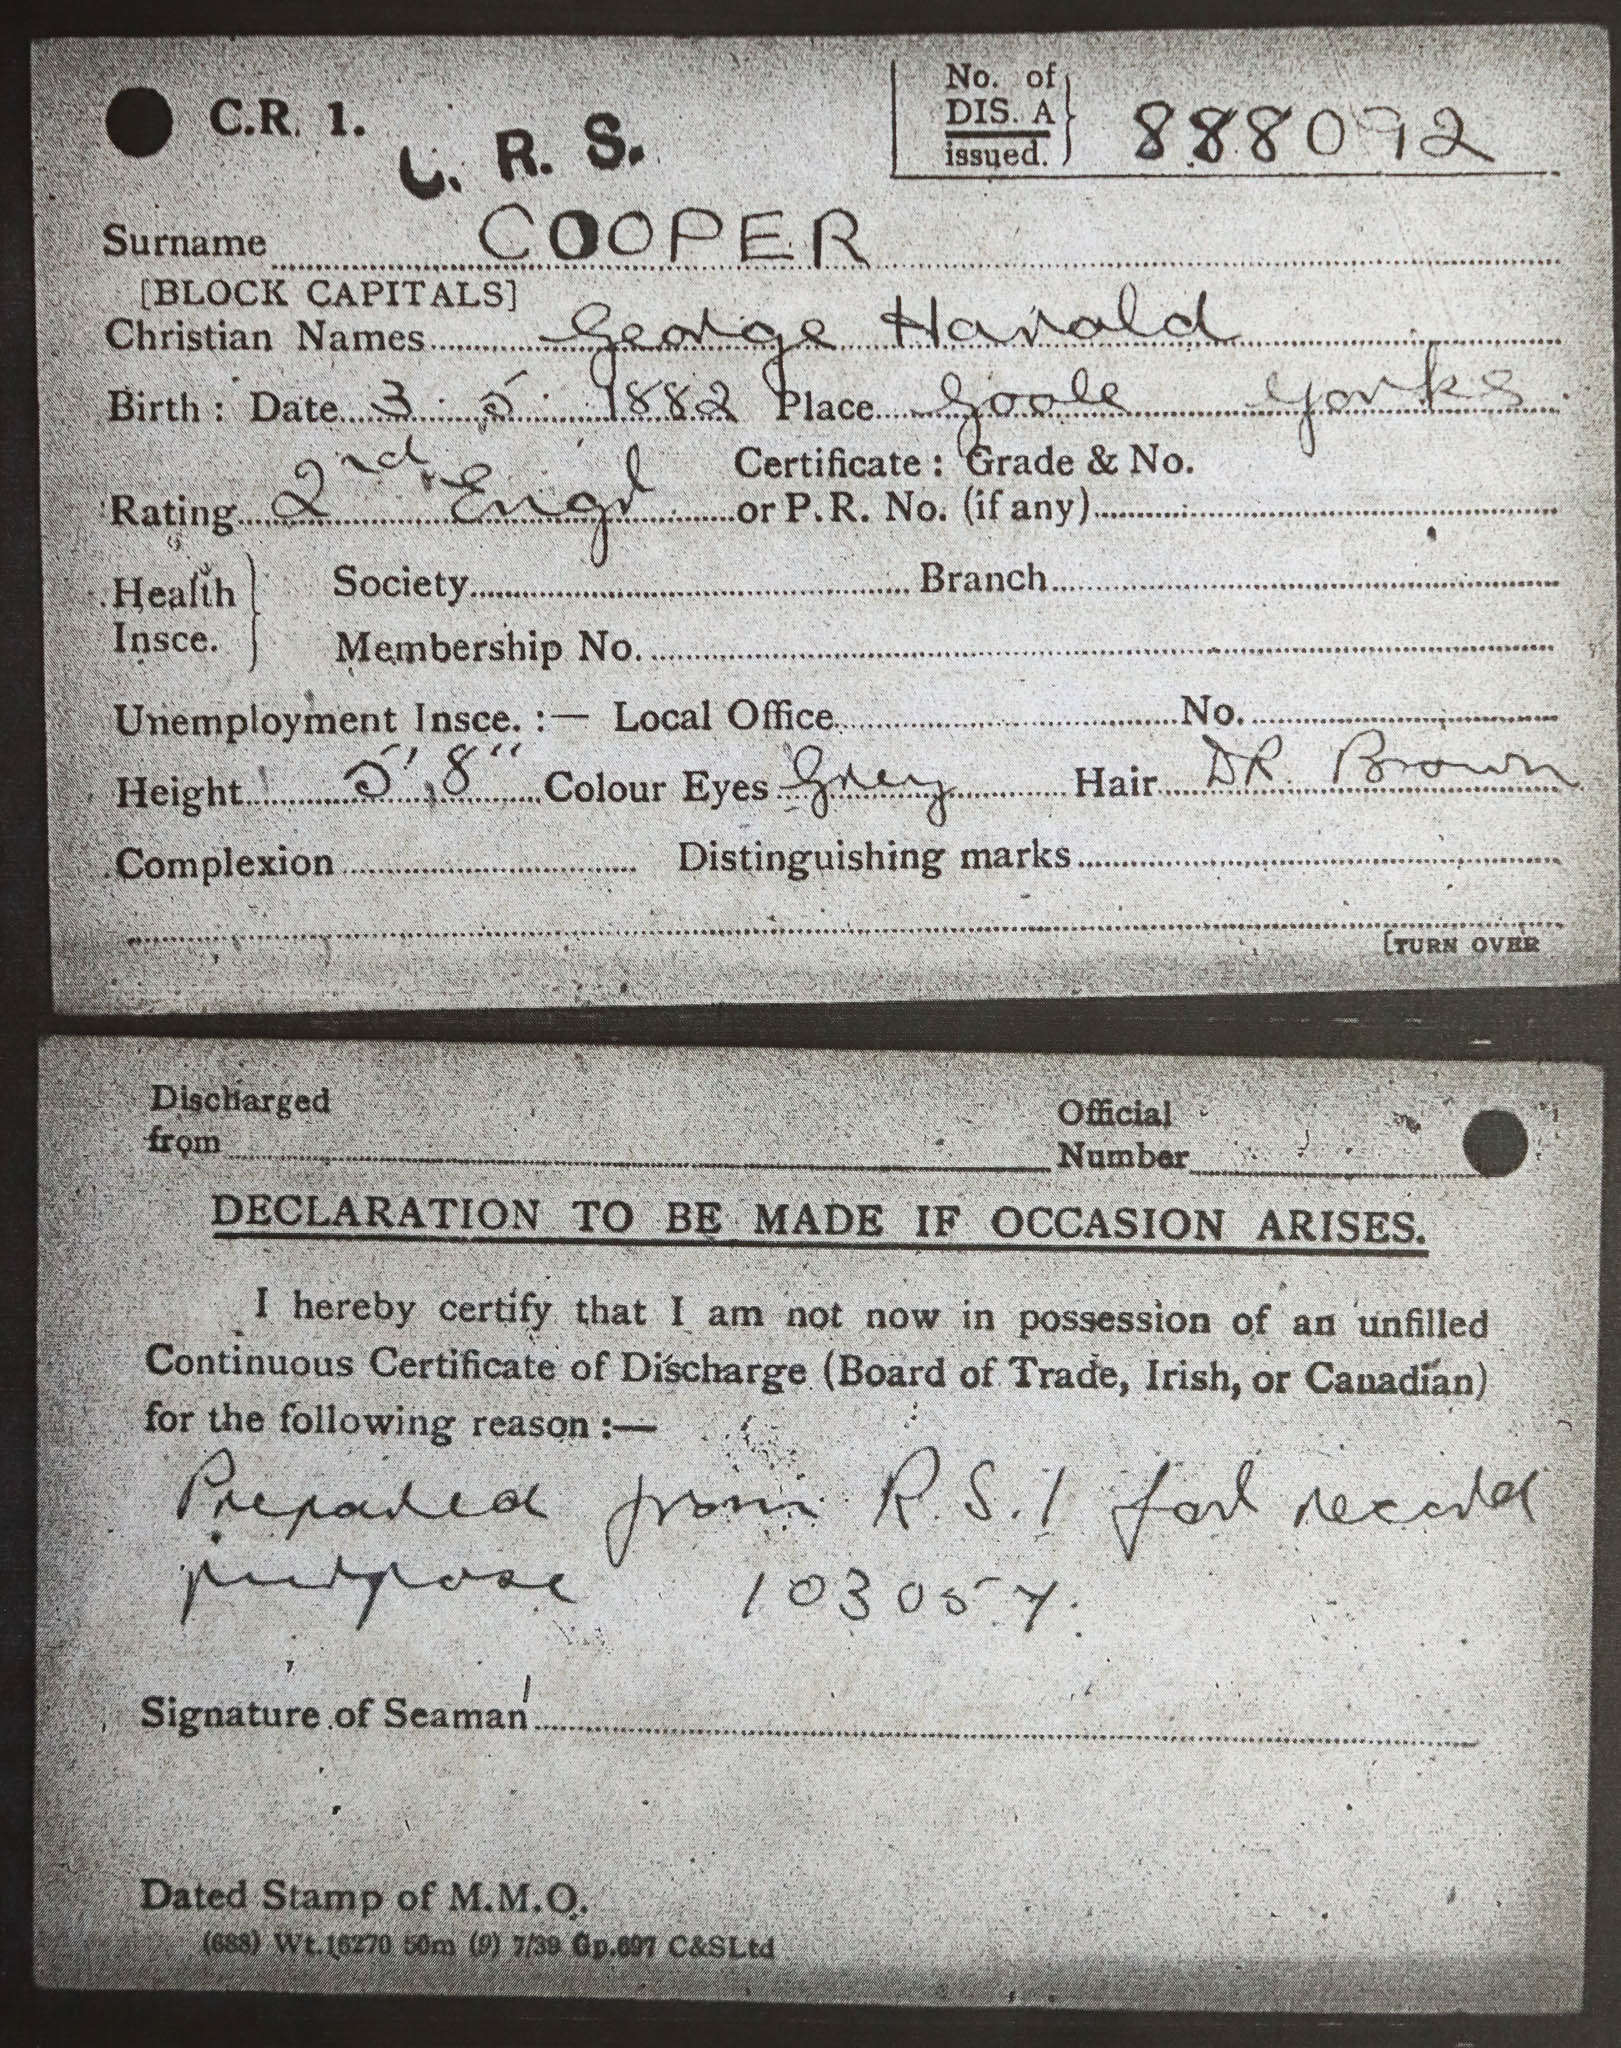 C.R. 1.
C. R. S.
No. of
DIS. A
issued.
888092
Surname COOPER
[BLOCK CAPITALS]
Christian Names George Harold
Birth : Date 3. 5. 1882 Place Goole Yorks.
Certificate : Grade & No.
Rating 2nd Engr or P.R. No. (if any)
Health Insce. } Society Branch
Membership No.
Unemployment Insce. :— Local Office No.
Height 5' 8" Colour Eyes Grey Hair DR. Brown
Complexion Distinguishing marks
[TURN OVER
Discharged from
Official Number
DECLARATION TO BE MADE IF OCCASION ARISES.
I hereby certify that I am not now in possession of an unfilled
Continuous Certificate of Discharge (Board of Trade, Irish, or Canadian)
for the following reason :—
Prepared from R.S.1 for record
purpose 103057.
Signature of Seaman
Dated Stamp of M.M.O.
(688) Wt.16270 50m (9) 7/39 Gp.697 C&SLtd